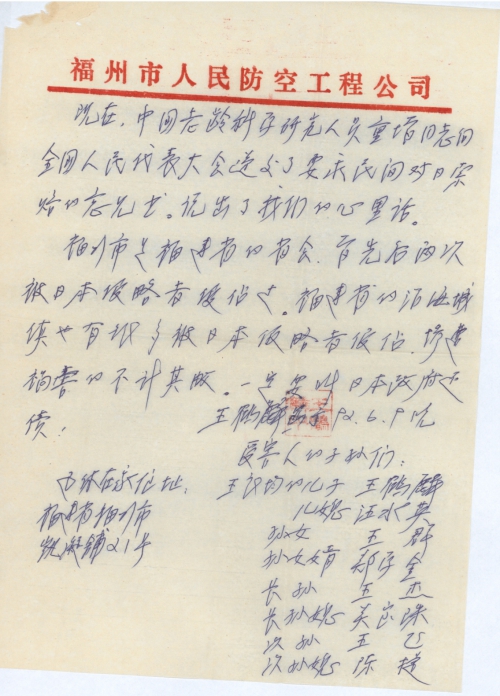 福州市人民防空工程公司
现在,中国老龄科学研究人员童增同志向
全国人民代表大会递交了要求民间对日索
赔的意见书。说出了我们的心里话。
福州市是福建省的省会,首先后两次
被日本侵略者侵占过。福建省的沿海城
镇也有很多被日本侵略者侵占,惨遭
祸害的不计其数。一定要叫日本政府还
债!
王鹤 92.6.9
受害人的子孙们:
王 的儿子 王鹤
儿媳 汪水英
孙女 王
孙女婿 郑 金
长孙 王杰
长孙媳 吴 珠
次孙 王
次孙媳 陈
永住址:
福建省福州市
21号